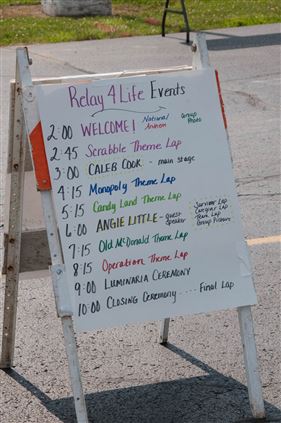 Relay 4 Life Events
2:00 WELCOME! National Anthem Group Photo
2:45 Scrabble Theme Lap
3:00 CALEB COOK - main stage
4:15 Monopoly Theme Lap
5:15 Candy Land Theme Lap
6:00 ANGIE LITTLE - guest speaker - Survivor Lap
- Caregiver Lap
- Team Lap
- Group Picture
7:15 Old McDonald Theme Lap
8:15 Operation Theme Lap
9:00 LUMINARIA CEREMONY
10:00 CLOSING CEREMONY ---- Final Lap